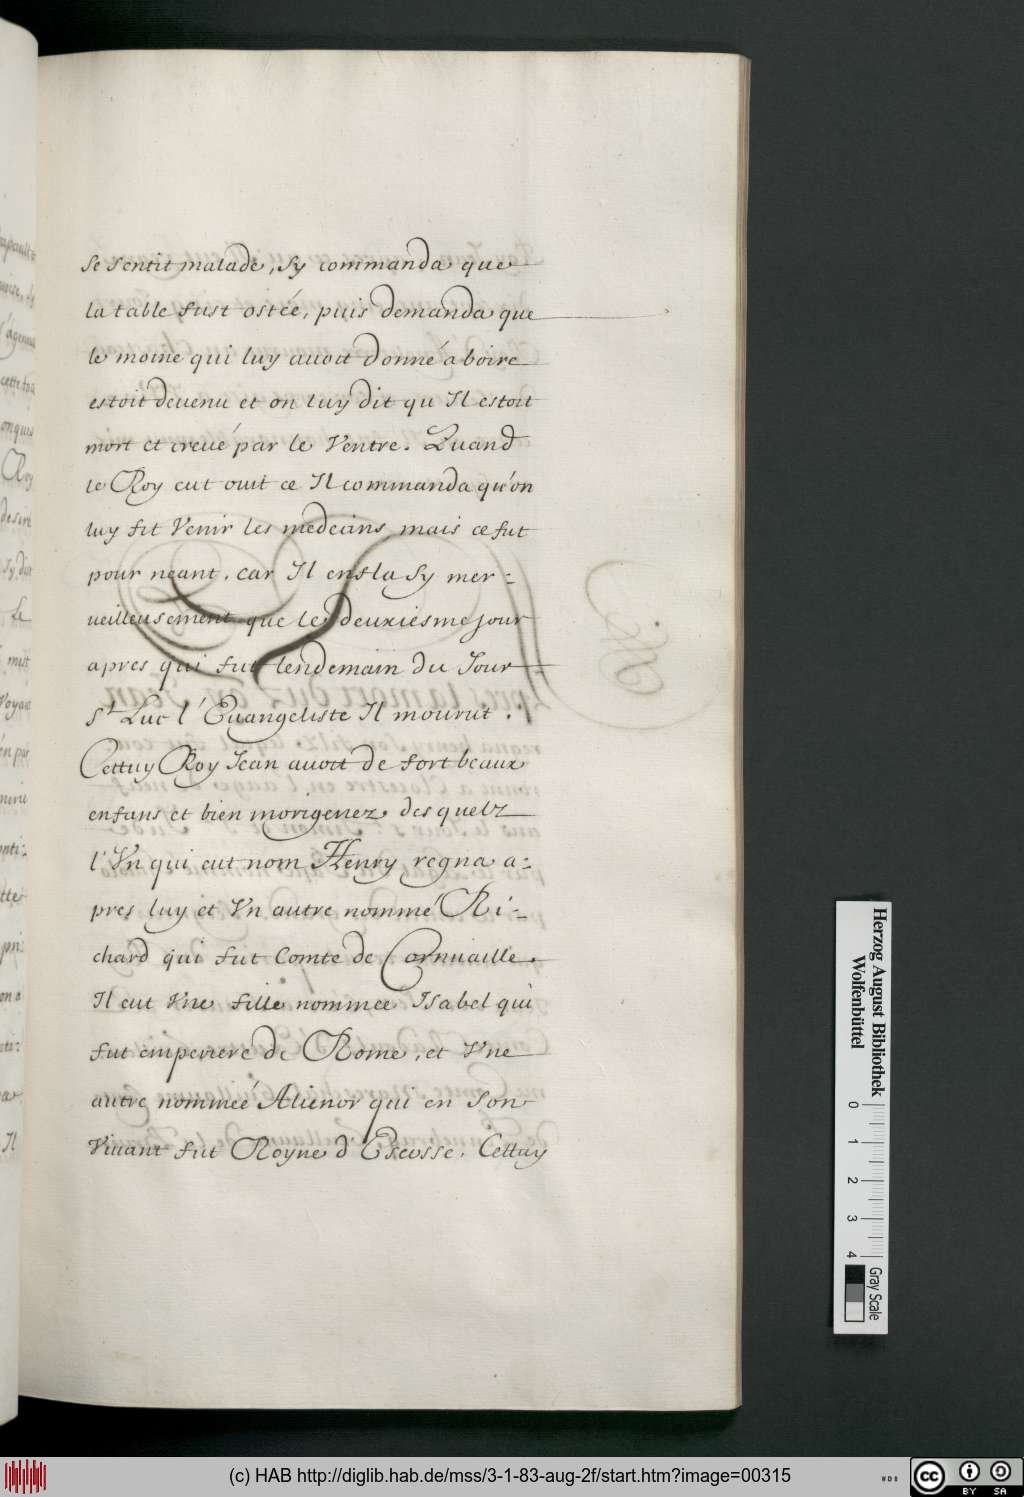 se sentit malade, sy commanda que
la table fust ostée, puis demanda que
le moine qui luy avoit donné a boire
estoit devenu et on luy dit qu Il estoit
mort et crevé par le Ventre. Quand
le Roy eut ouit ce Il commanda qu'on
luy fit Venir les medecins mais ce fut
pour neant, car Il ensla sy mer-
ueilleusement que le deuxiésme jour
apres qui fut lendemain du Jour
St Luc l'Euangeliste Il mourut.
Cettuy Roy Jean auoit de fort beaux
enfans et bien morigenez desquelz
l'Vn qui eut nom Henry regna a-
pres luy et Vn autre nommé Ri-
chard qui fut Comte de Cornuaille.
Il eut Vne fille nommee Isabel qui
fut emperiere de Rome, et Vne
autre nommeé Alienor qui en son
Viuant fut Royne d'Escosse. Cettuy
Roy
Il
Herzog August Bibliothek
Wolfenbüttel
0 1 2 3 4
Gray Scale
(c) HAB http://diglib.hab.de/mss/3-1-83-aug-2f/start.htm?image=00315
WDB
cc
BY SA